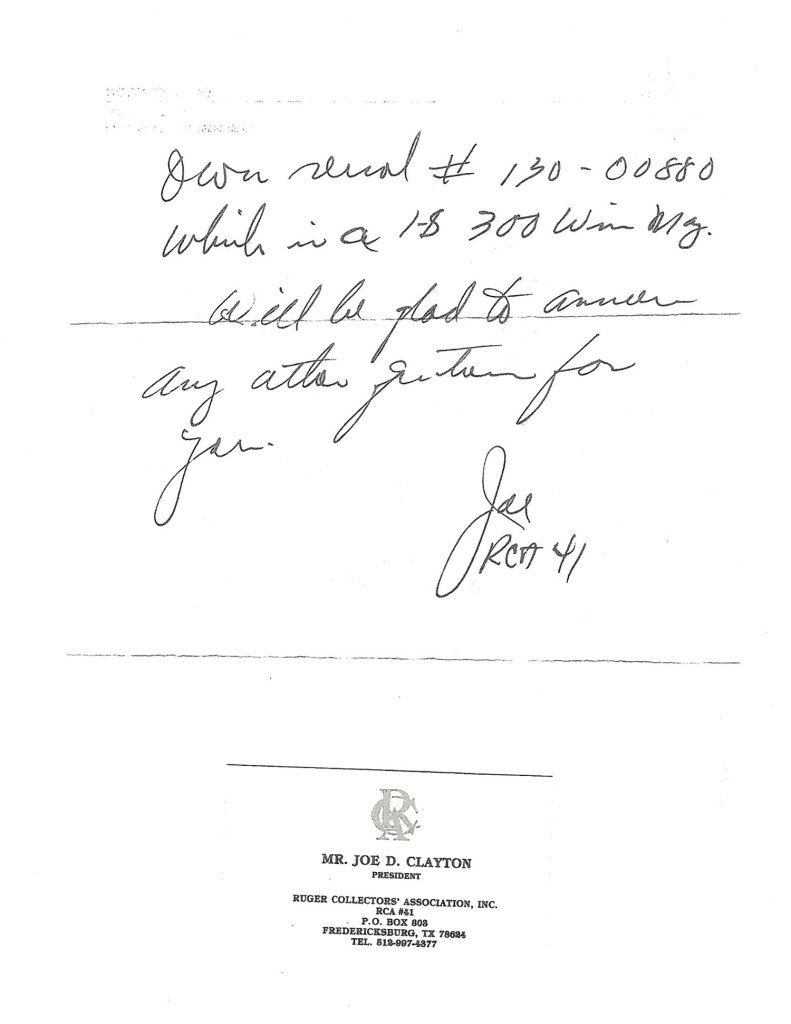 Own serial # 130-00880
which is a 1-S 300 Win Mg.
Will be glad to answer
any other question for
you.
Joe
RCA 41
RCA
MR. JOE D. CLAYTON
PRESIDENT
RUGER COLLECTORS' ASSOCIATION, INC.
RCA #41
P.O. BOX 808
FREDERICKSBURG, TX 78624
TEL. 512-997-4377